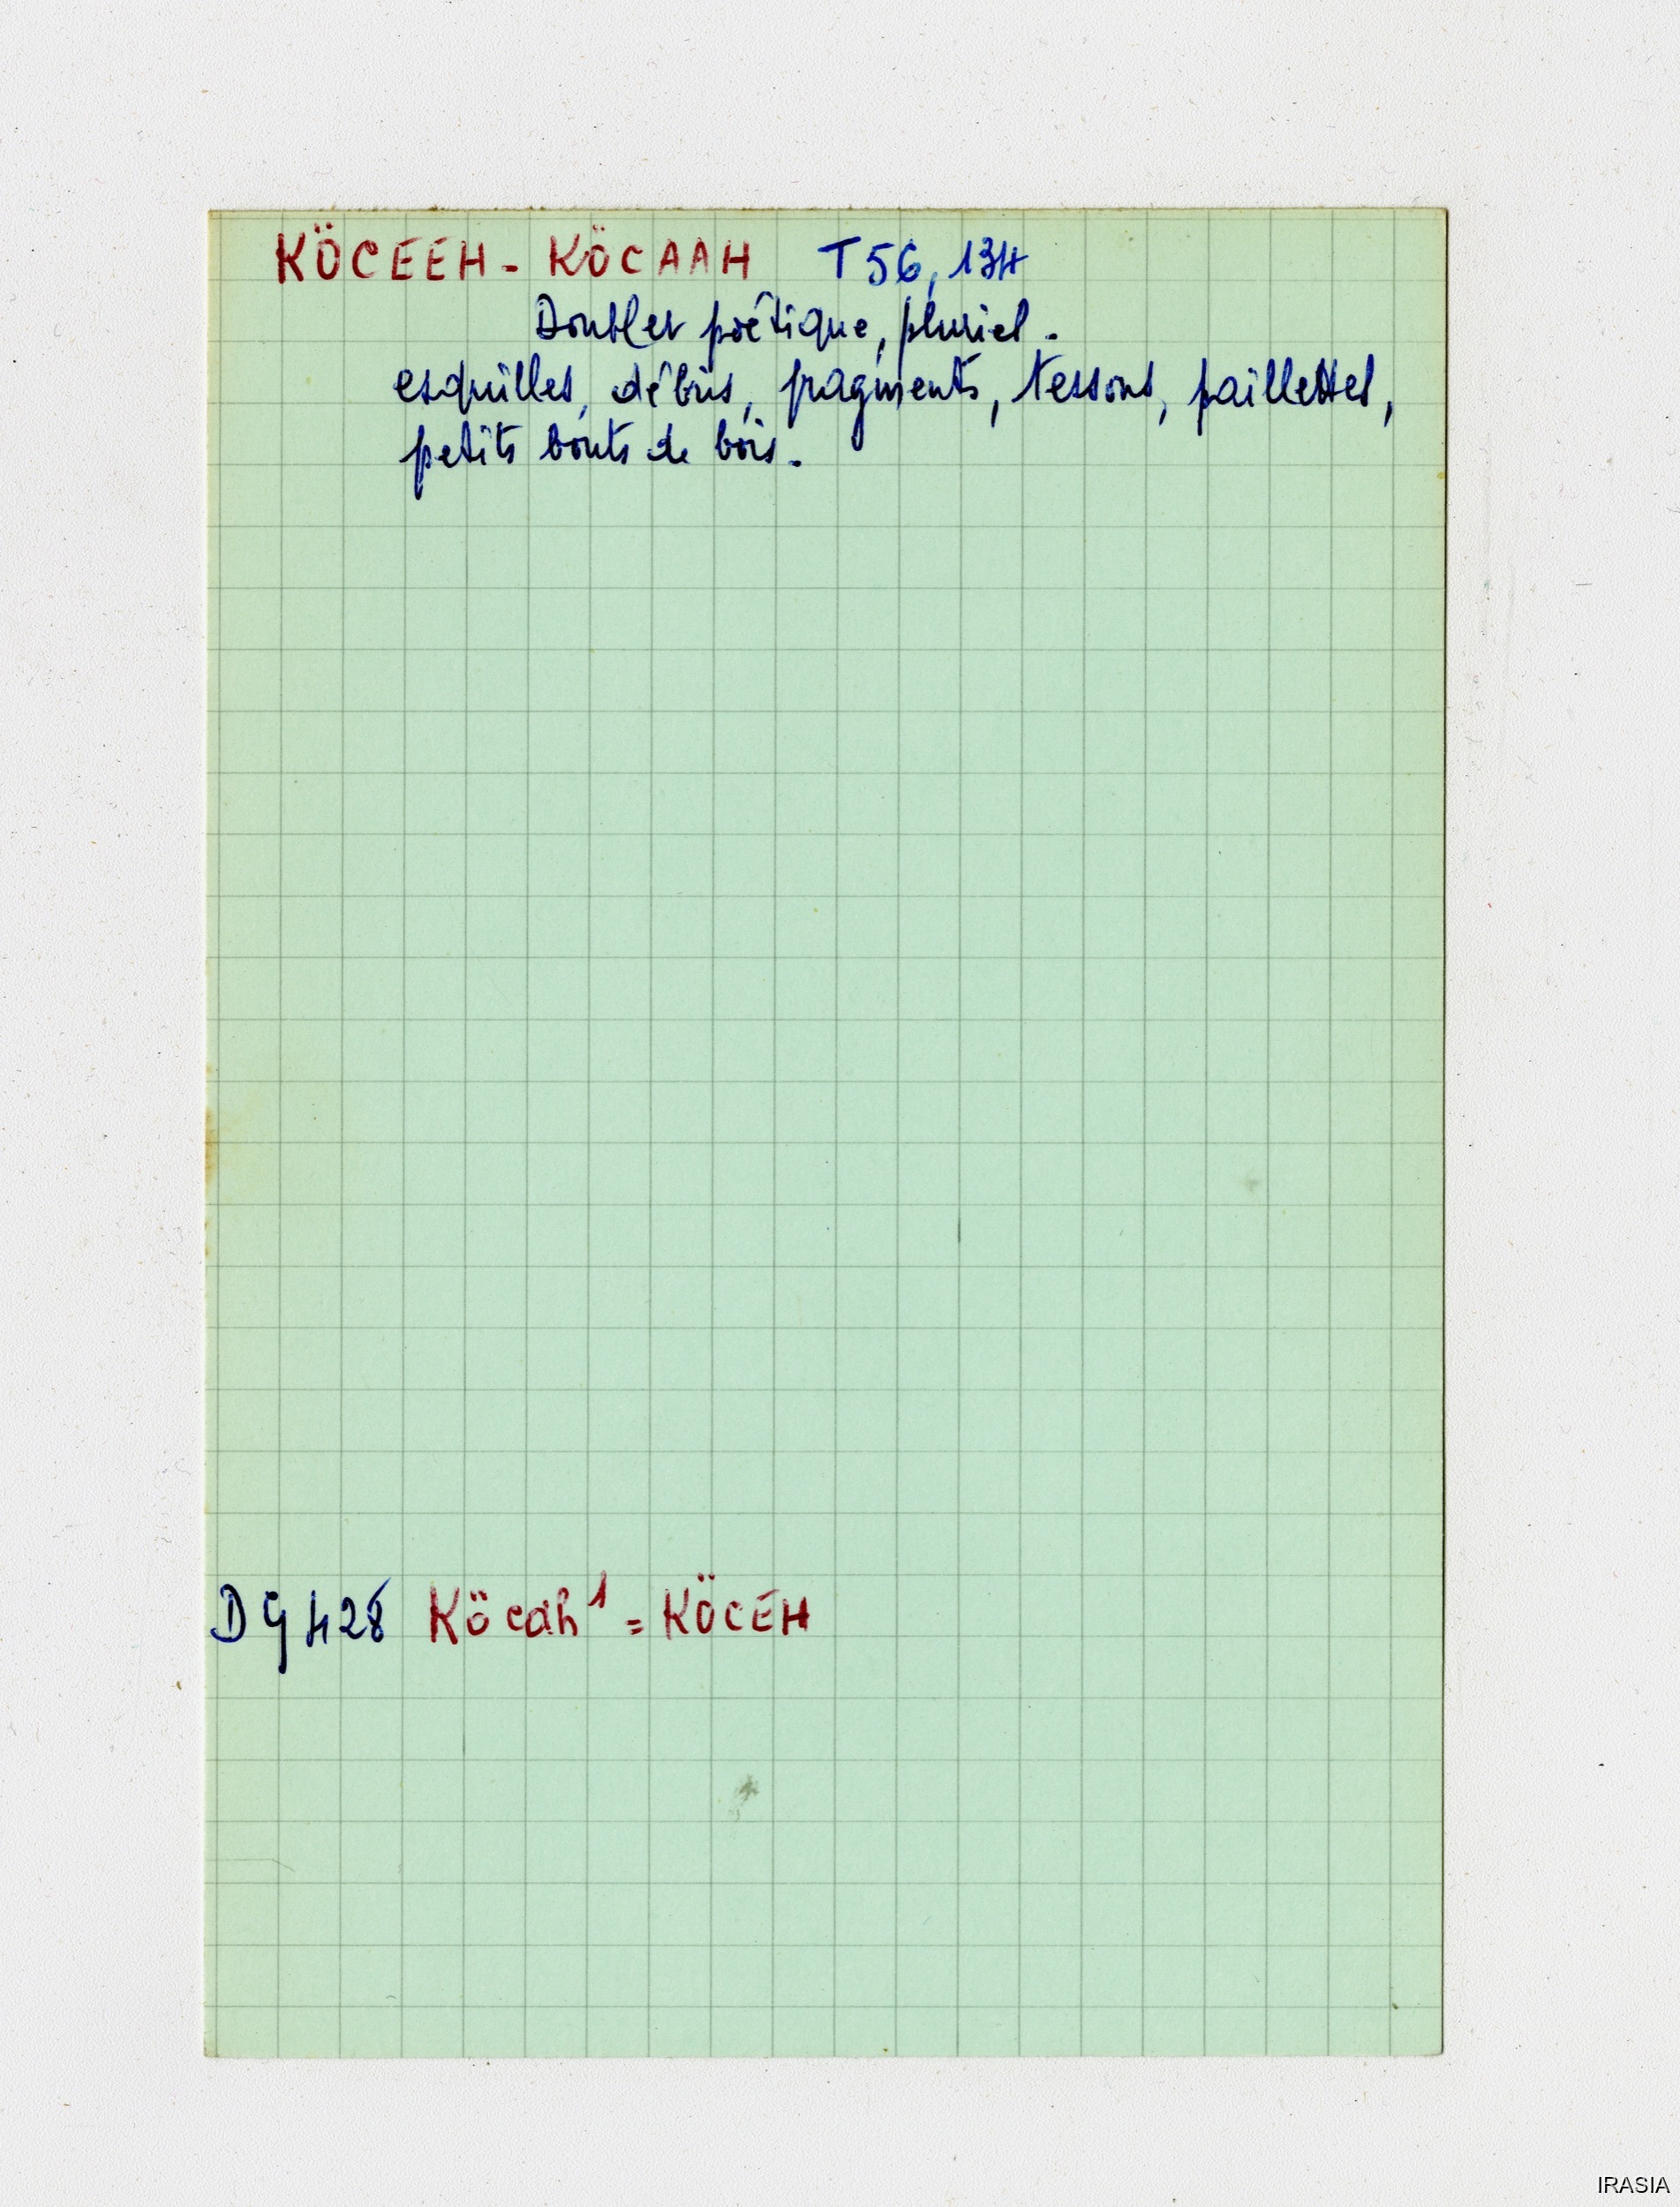 KÖCEEH - KÖCAAH T56, 134
Doublet poétique, pluriel.
esquilles, débris, fragments, tessons, paillettes,
petits bouts de bois.
DG 428 Köcah¹ = KÖCEH
IRASIA